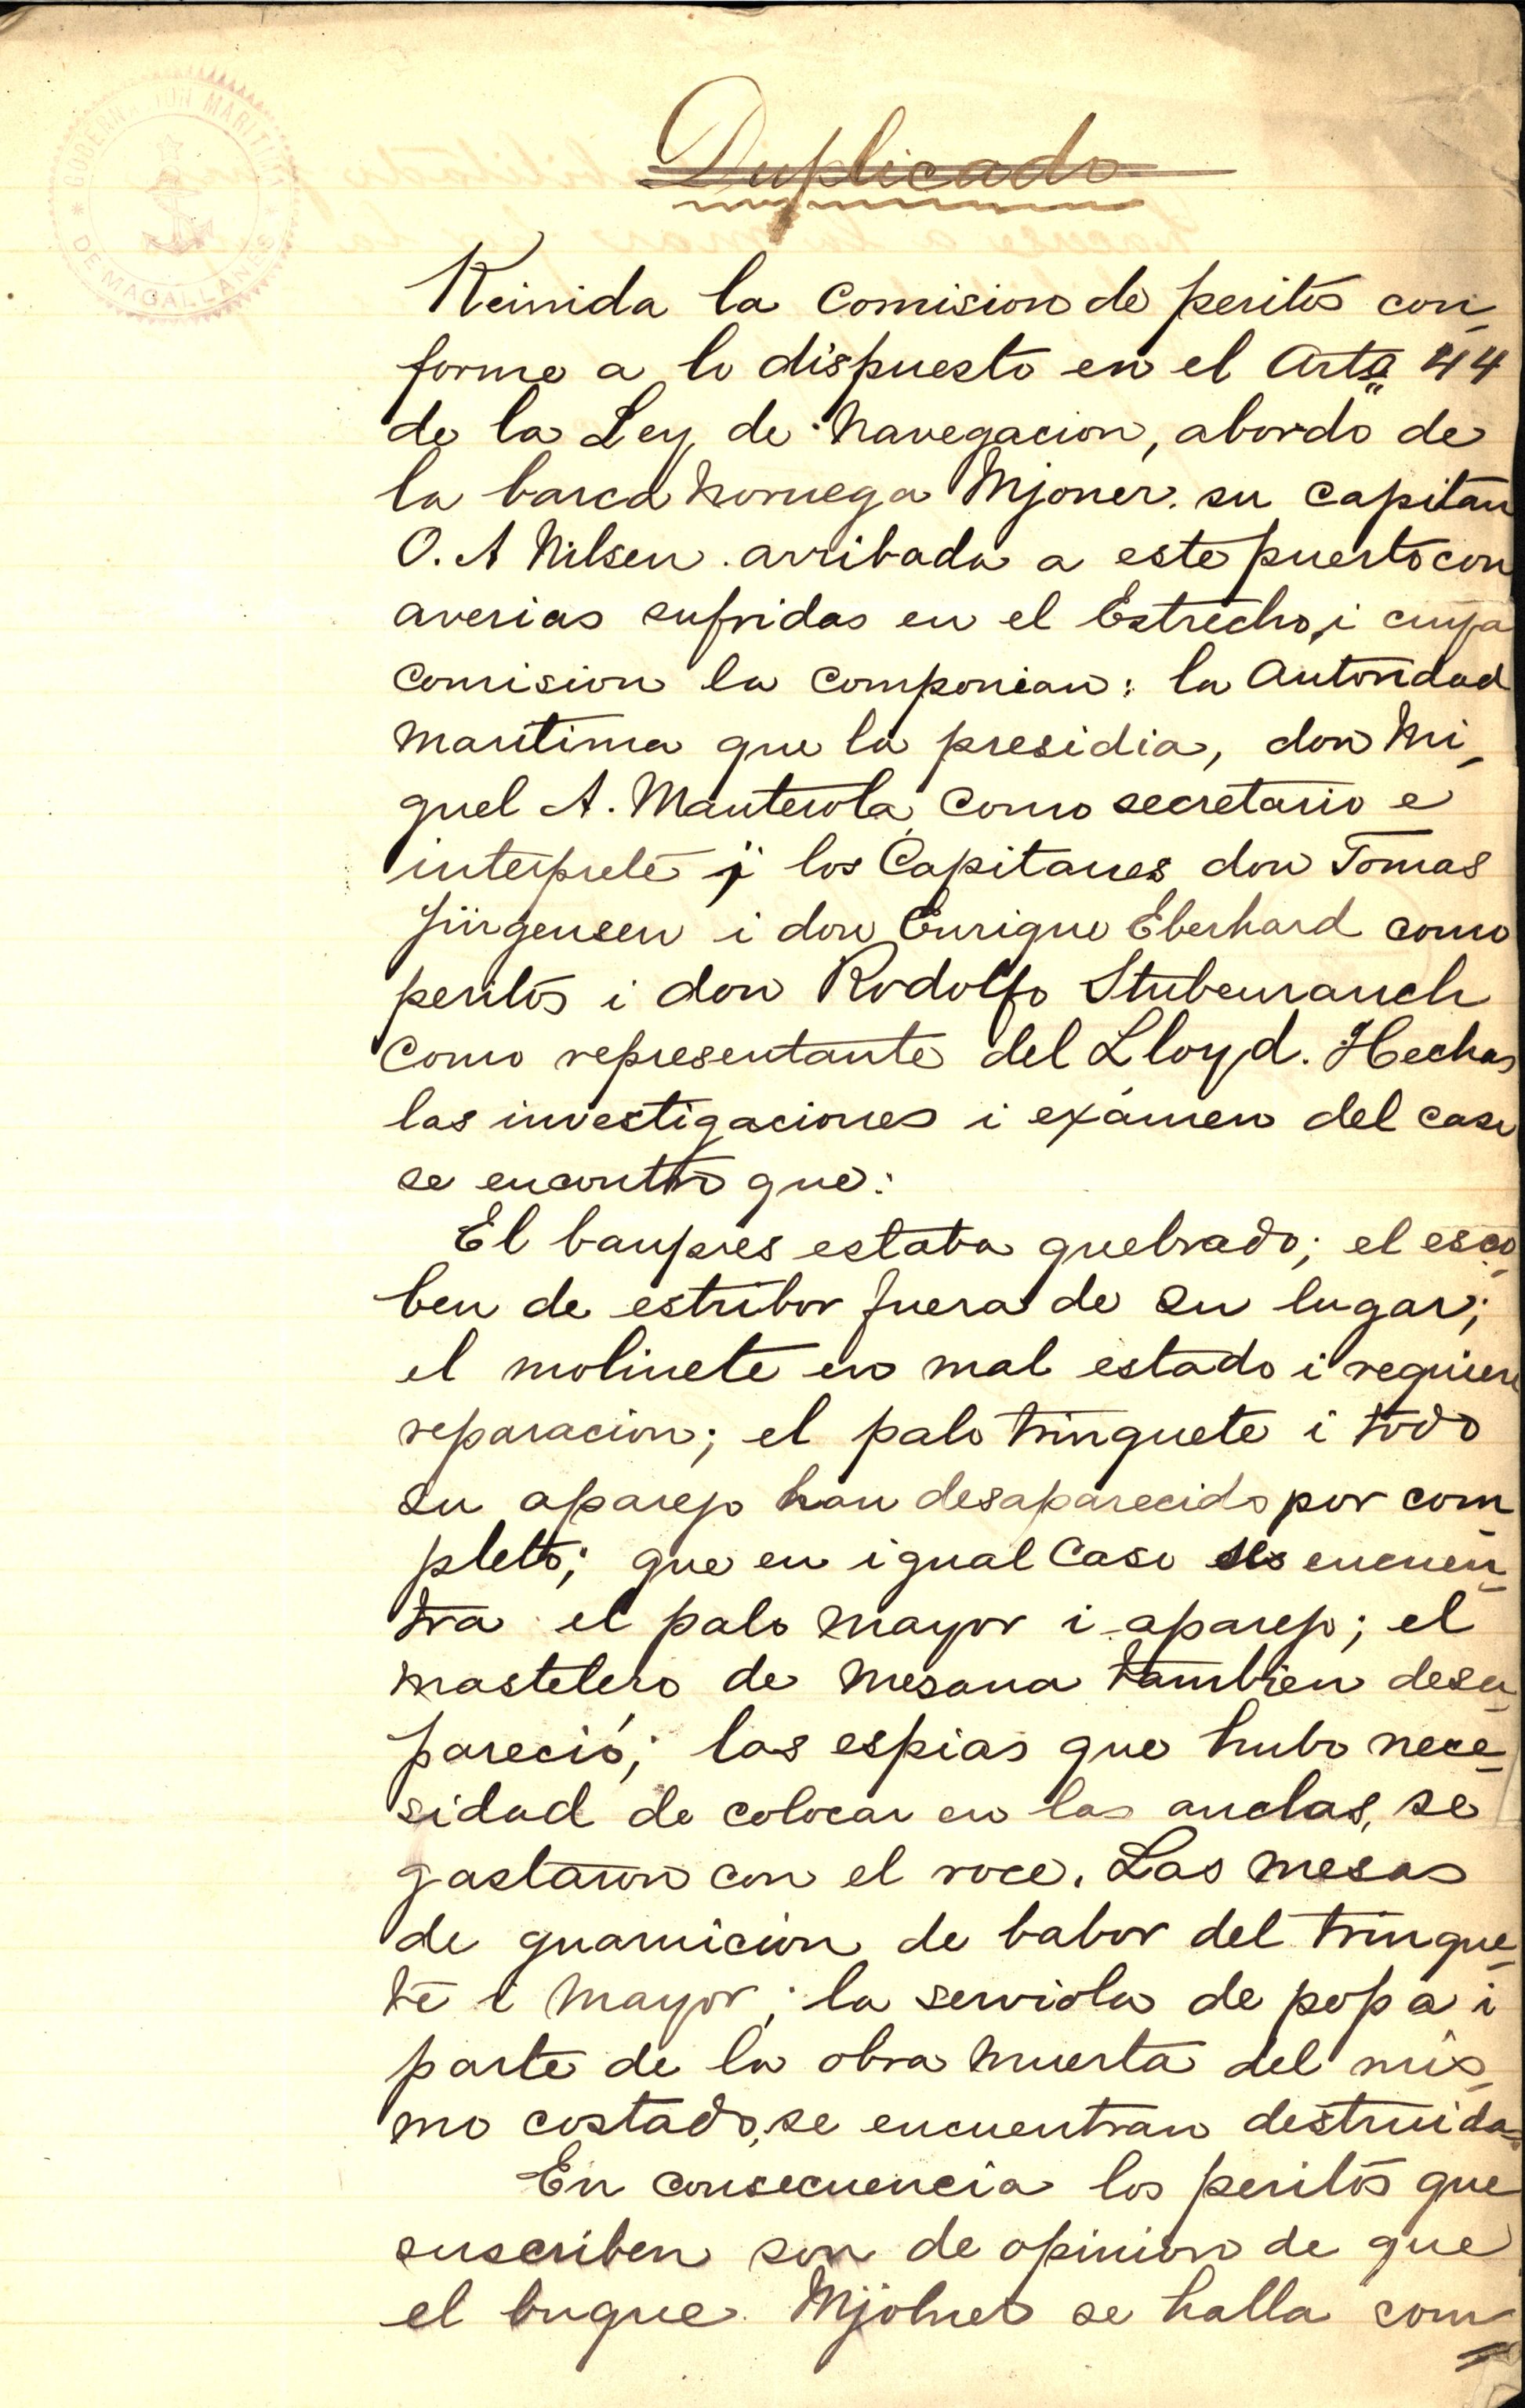 GOBERNACION MARITIMA
* DE MAGALLANES *
Duplicado
Reunida la Comision de peritos con-
forme a lo dispuesto en el Arto 44
de la Ley de Navegacion, abordo de
la barca noruega Mjoner. su capitan
O. A Nilsen. arribada a este puerto con
averias sufridas en el Estrecho, i cuya
comision la componian: la Autoridad
Maritima que la presidia, don Mi-
guel A. Manterola, como secretario e
interprete i los Capitanes don Tomas
Jürgensen i don Enrique Eberhard como
peritos i don Rodolfo Stubenrauch
Como representante del Lloyd. Hechas
las investigaciones i exámen del caso
se encontró que:
El baupres estaba quebrado; el esco-
ben de estribor fuera de su lugar;
el molinete en mal estado i requiere
reparacion; el palo trinquete i todo
su aparejo han desaparecido por com-
pleto; que en igual Caso se encuen-
tra el palo mayor i aparejo; el
mastelero de mesana tambien desa-
pareció; las espias que hubo nece-
sidad de colocar en las anclas, se
gastaron con el roce. Las mesas
de guarnicion de babor del trinque-
te i mayor; la serviola de popa i
parte de la obra muerta del mis-
mo costado, se encuentran destruidas
En consecuencia los peritos que
suscriben son de opinion de que
el buque Mjölner se halla com=